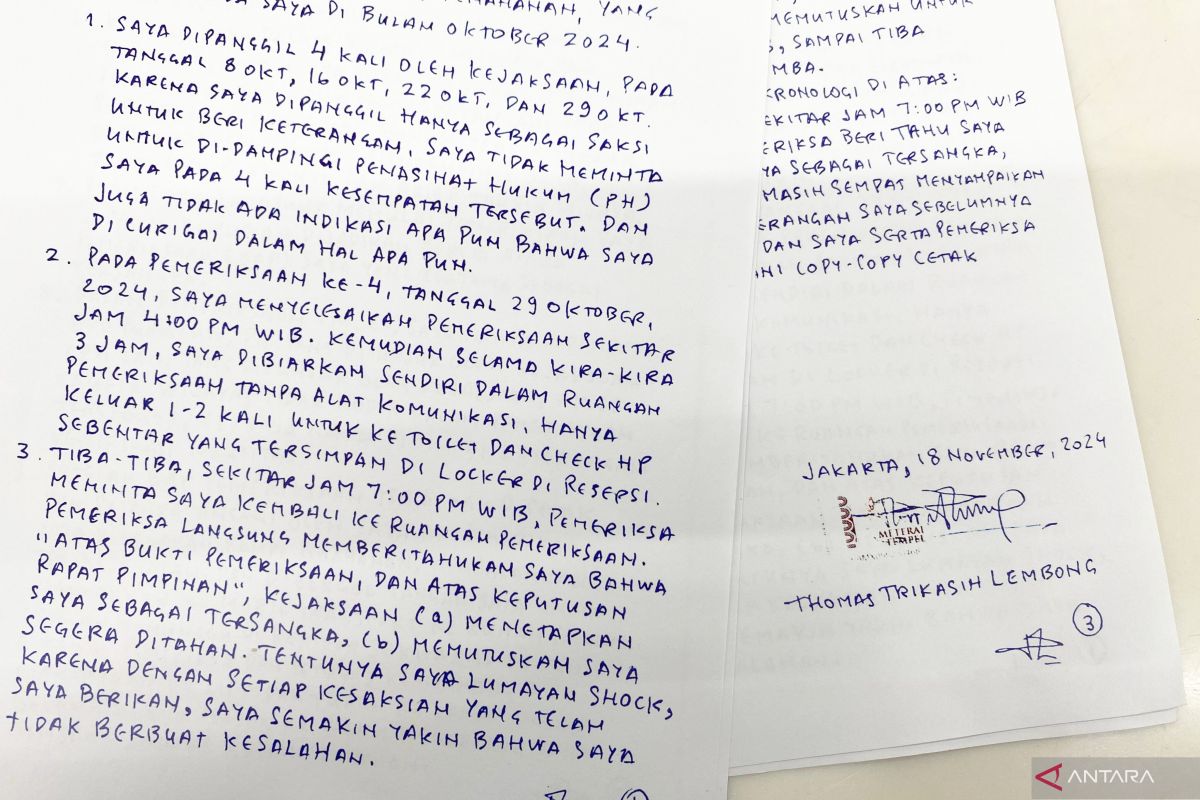 SAYA DI BULAN OKTOBER 2024.
1. SAYA DIPANGGIL 4 KALI OLEH KEJAKSAAN, PADA
TANGGAL 8 OKT, 16 OKT, 22 OKT, DAN 29 OKT.
KARENA SAYA DIPANGGIL HANYA SEBAGAI SAKSI
UNTUK BERI KETERANGAN, SAYA TIDAK MEMINTA
UNTUK DI-DAMPINGI PENASIHAT HUKUM (PH)
SAYA PADA 4 KALI KESEMPATAN TERSEBUT. DAN
JUGA TIDAK ADA INDIKASI APA PUN BAHWA SAYA
DI CURIGAI DALAM HAL APA PUN.
2. PADA PEMERIKSAAN KE-4, TANGGAL 29 OKTOBER,
2024, SAYA MENYELESAIKAN PEMERIKSAAN SEKITAR
JAM 4:00 PM WIB. KEMUDIAN SELAMA KIRA-KIRA
3 JAM, SAYA DIBIARKAN SENDIRI DALAM RUANGAN
PEMERIKSAAN TANPA ALAT KOMUNIKASI, HANYA
KELUAR 1-2 KALI UNTUK KE TOILET DAN CHECK HP
SEBENTAR YANG TERSIMPAN DI LOCKER DI RESEPSI.
3. TIBA-TIBA, SEKITAR JAM 7:00 PM WIB, PEMERIKSA
MEMINTA SAYA KEMBALI KE RUANGAN PEMERIKSAAN.
PEMERIKSA LANGSUNG MEMBERITAHUKAN SAYA BAHWA
"ATAS BUKTI PEMERIKSAAN, DAN ATAS KEPUTUSAN
RAPAT PIMPINAN", KEJAKSAAN (a) MENETAPKAN
SAYA SEBAGAI TERSANGKA, (b) MEMUTUSKAN SAYA
SEGERA DITAHAN. TENTUNYA SAYA LUMAYAN SHOCK,
KARENA DENGAN SETIAP KESAKSIAN YANG TELAH
SAYA BERIKAN, SAYA SEMAKIN YAKIN BAHWA SAYA
TIDAK BERBUAT KESALAHAN.
MEMUTUSKAN UNTUK
, SAMPAI TIBA
MBA.
KRONOLOGI DI ATAS:
EKITAR JAM 7:00 PM WIB
ERIKSA BERI TAHU SAYA
YA SEBAGAI TERSANGKA,
MASIH SEMPAT MENYAMPAIKAN
ERANGAN SAYA SEBELUMNYA
DAN SAYA SERTA PEMERIKSA
ANI COPY-COPY CETAK
JAKARTA, 18 NOVEMBER, 2024
METERAI
TEMPEL
THOMAS TRIKASIH LEMBONG
3
ANTARA